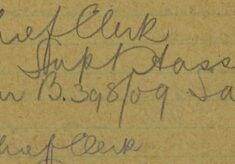 hief Clerk
Supt Hass
B.398/09 Sa
hief Clerk